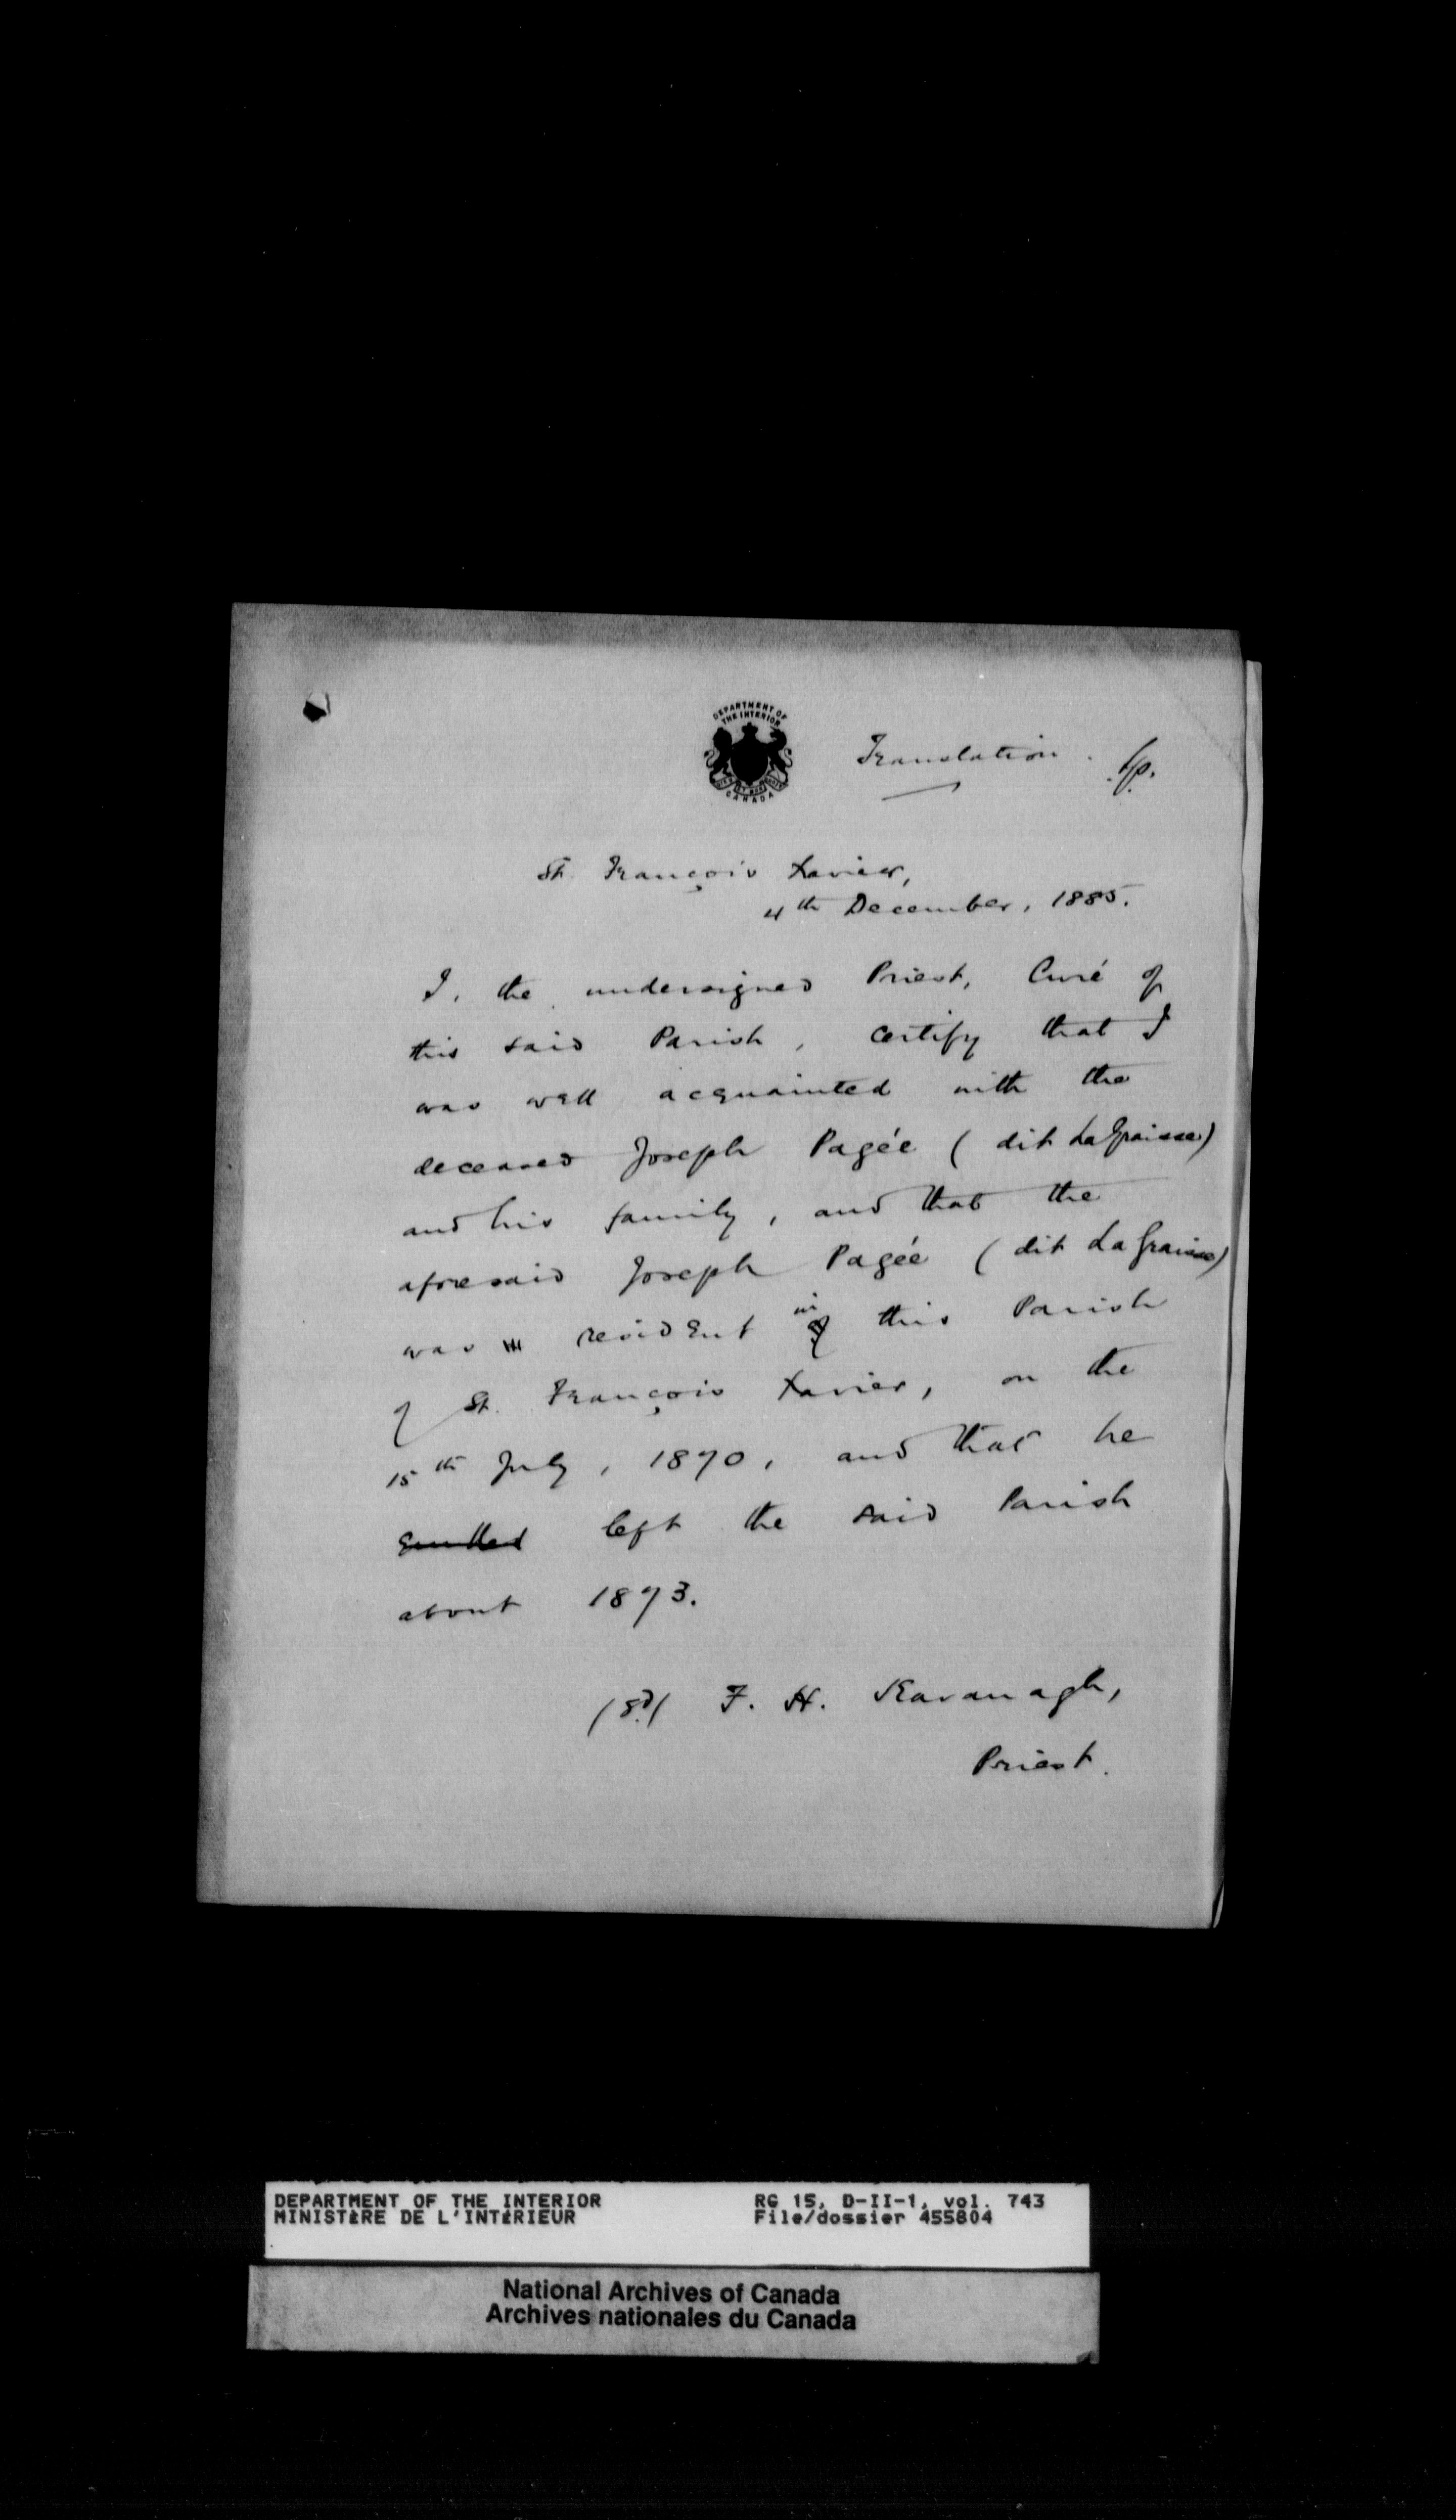 DEPARTMENT OF
THE INTERIOR
CANADA
Translation.
St. François Xavier,
4th December, 1885.
I, the undersigned Priest, Curé of
this said Parish, certify that I
was well acquainted with the
deceased Joseph Pagée (dit LaGraisse)
and his family, and that the
aforesaid Joseph Pagée (dit LaGraisse)
was resident in this Parish
of St. François Xavier, on the
15th July, 1870, and that he
left the said Parish
about 1873.
(Sd) F. H. Kavanagh,
Priest.
DEPARTMENT OF THE INTERIOR RG 15, D-II-1, vol. 743
MINISTÈRE DE L'INTÉRIEUR File/dossier 455804
National Archives of Canada
Archives nationales du Canada